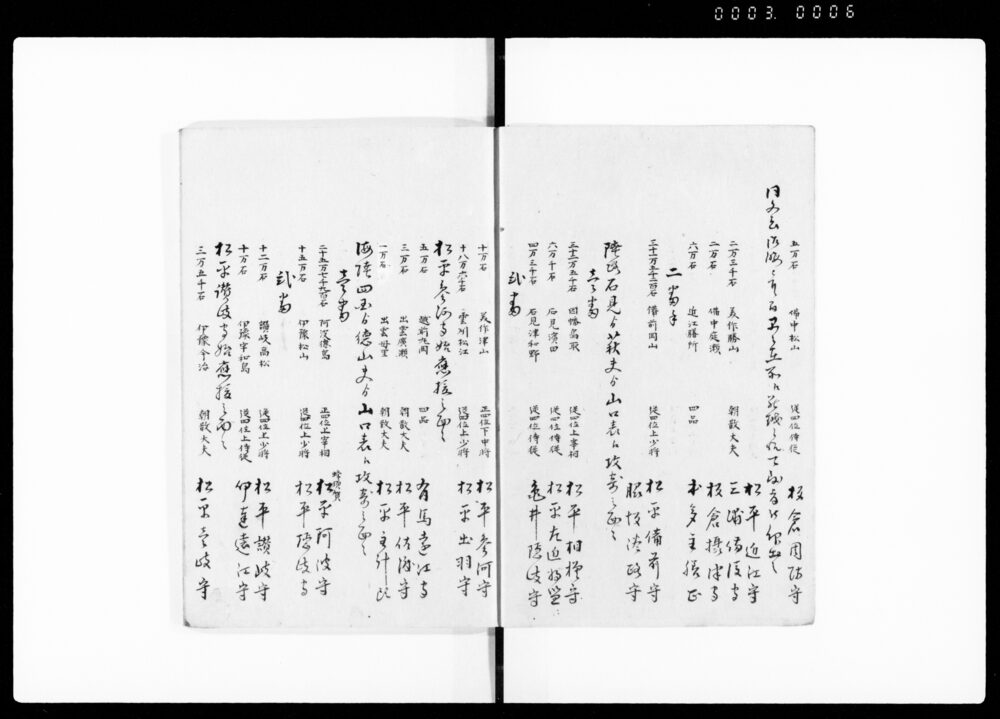 0003 0006
五万石 備中松山 従四位侍従 板倉周防守
松平近江守
二万三千石 美作勝山 朝散大夫 三浦備後守
二万石 備中庭瀬 板倉摂津守
六万石 近江膳所 四品 本多主膳正
二番手
三十一万五千二百石 備前岡山 従四位上少将 松平備前守
脇坂淡路守
陸路石見より萩夫より山口表江攻寄之面々
壱番
三十二万五千石 因幡鳥取 従四位上宰相 松平相模守
六万千石 石見濱田 従四位侍従 松平左近将監
四万三千石 石見津和野 従四位侍従 亀井隠岐守
弐番
十万石 美作津山 正四位下中将 松平参河守
十八万六千石 雲州松江 従四位上少将 松平出羽守
松平参河守始應援之面々
五万石 越前丸岡 四品 有馬遠江守
三万石 出雲廣瀬 朝散大夫 松平佐渡守
一万石 出雲母里 朝散大夫 松平主計頭
海陸四国より徳山夫より山口表江攻寄之面々
壱番
二十五万七千九百石 阿波徳島 正四位上宰相 蜂須賀 松平阿波守
十五万石 伊豫松山 従四位上少将 松平隠岐守
弐番
十二万石 讃岐高松 従四位上少将 松平讃岐守
十万石 伊豫宇和島 従四位上侍従 伊達遠江守
松平讃岐守始應援之面々
三万五千石 伊豫今治 朝散大夫 松平壱岐守